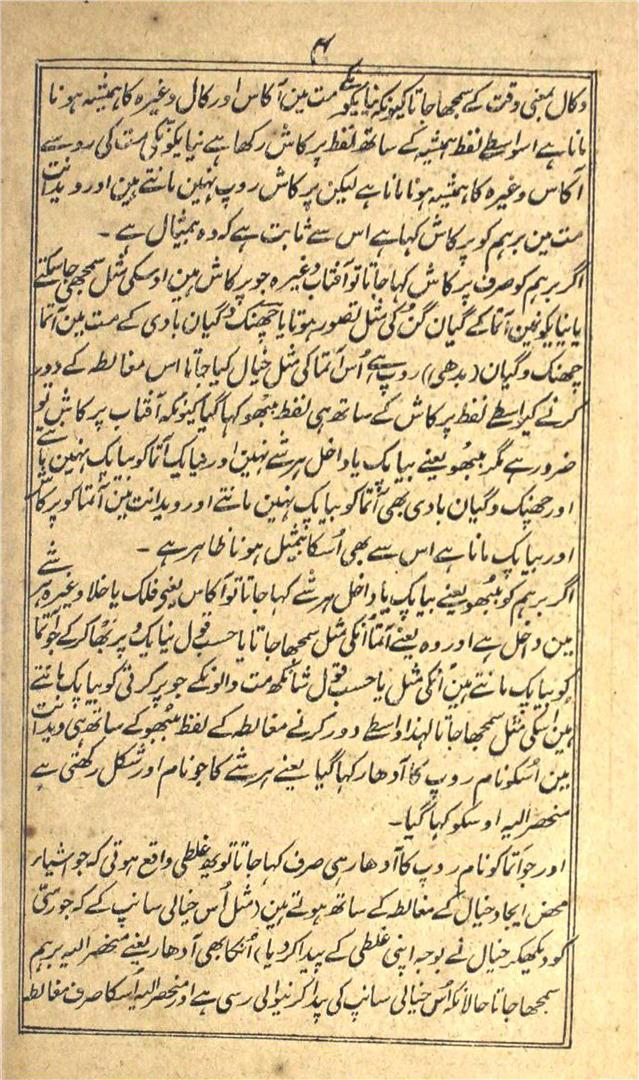 ۴
وکال بمعنی وقت کے سمجھا جاتا کیونکہ نیایکونکے مت مین آکاس اور کال وغیرہ کا ہمیشہ ہونا
مانا ہے اسواسطے لفظ ہمیشہ کے ساتھ لفظ پرکاش رکھا ہے نیایکونکی مت کی روسے
آکاس وغیرہ کا ہمیشہ ہونا مانا ہے لیکن پرکاش روپ نہین مانتے ہین اور ویدانت
مت مین برہم کو پرکاش کہا ہے اس سے ثابت ہے کہ وہ بمیثال ہے ۔
اگر برہم کو صرف پرکاش کہا جاتا تو آفتاب وغیرہ جو پرکاش ہین اوسکی مثل سمجھی جا سکتے
یا نیایکونہین آتما کے گیان گن کی مثل تصور ہوتا یا چھنک وگیان بادی کے مت مین آتما
چھنک وگیان (بدھی) روپ ہے اُس آتما کی مثل خیال کیا جاتا اس مغالطہ کے دور
کرنے کیواسطے لفظ پرکاش کے ساتھ ہی لفظ ببھو کہا گیا کیونکہ آفتاب پرکاش تو
ضرور ہے مگر ببھو یعنے بیاپک یا داخل ہر شے نہین اور نیایک آتما کو بیاپک نہین
اور چھنک وگیان بادی بھی آتما کو بیاپک نہین مانتے اور ویدانت مین آتما کو
اور بیاپک مانا ہے اس سے بھی اُسکا بمیثل ہونا ظاہر ہے ۔
اگر برہم کو ببھو یعنے بیاپک یا داخل ہر شے کہا جاتا تو آکاس یعنی فلک یا خلا وغیرہ ہر شے
مین داخل ہے اور وہ یعنے آتما اُنکی مثل سمجھا جاتا یا حسب قول نیایک و پربھاکر کے جو آتما
کو بیاپک مانتے ہین اُنکی مثل یا حسب قول سانکھ مت والونکے جو پرکرتی کو بیاپک مانتے
ہین اُسکی مثل سمجھا جاتا لہذا واسطے دور کرنے مغالطہ کے لفظ ببھو کے ساتھ ہی ویدانت
مین اُسکو نام روپ کا آدھار کہا گیا یعنے ہر شے کا جو نام اور شکل رکھتی ہے
منحصر الیہ اوسکو کہا گیا۔
اور جو آتما کو نام روپ کا آدھار ہی صرف کہا جاتا تو یھ غلطی واقع ہوتی کہ جو اشیاء
محض ایجاد خیال کے مغالطہ کے ساتھ ہوتے ہین (مثل اُس خیالی سانپ کے کہ جو رسّی
کو دیکھکر خیال نے بوجہ اپنی غلطی کے پیدا کر دیا) اُنکا بھی آدھار یعنے منحصر الیہ برہم
سمجھا جاتا حالانکہ اُس خیالی سانپ کی پیدا کرنیوالی رسی ہے اور منحصر الیہ اُسکا صرف مغالطہ